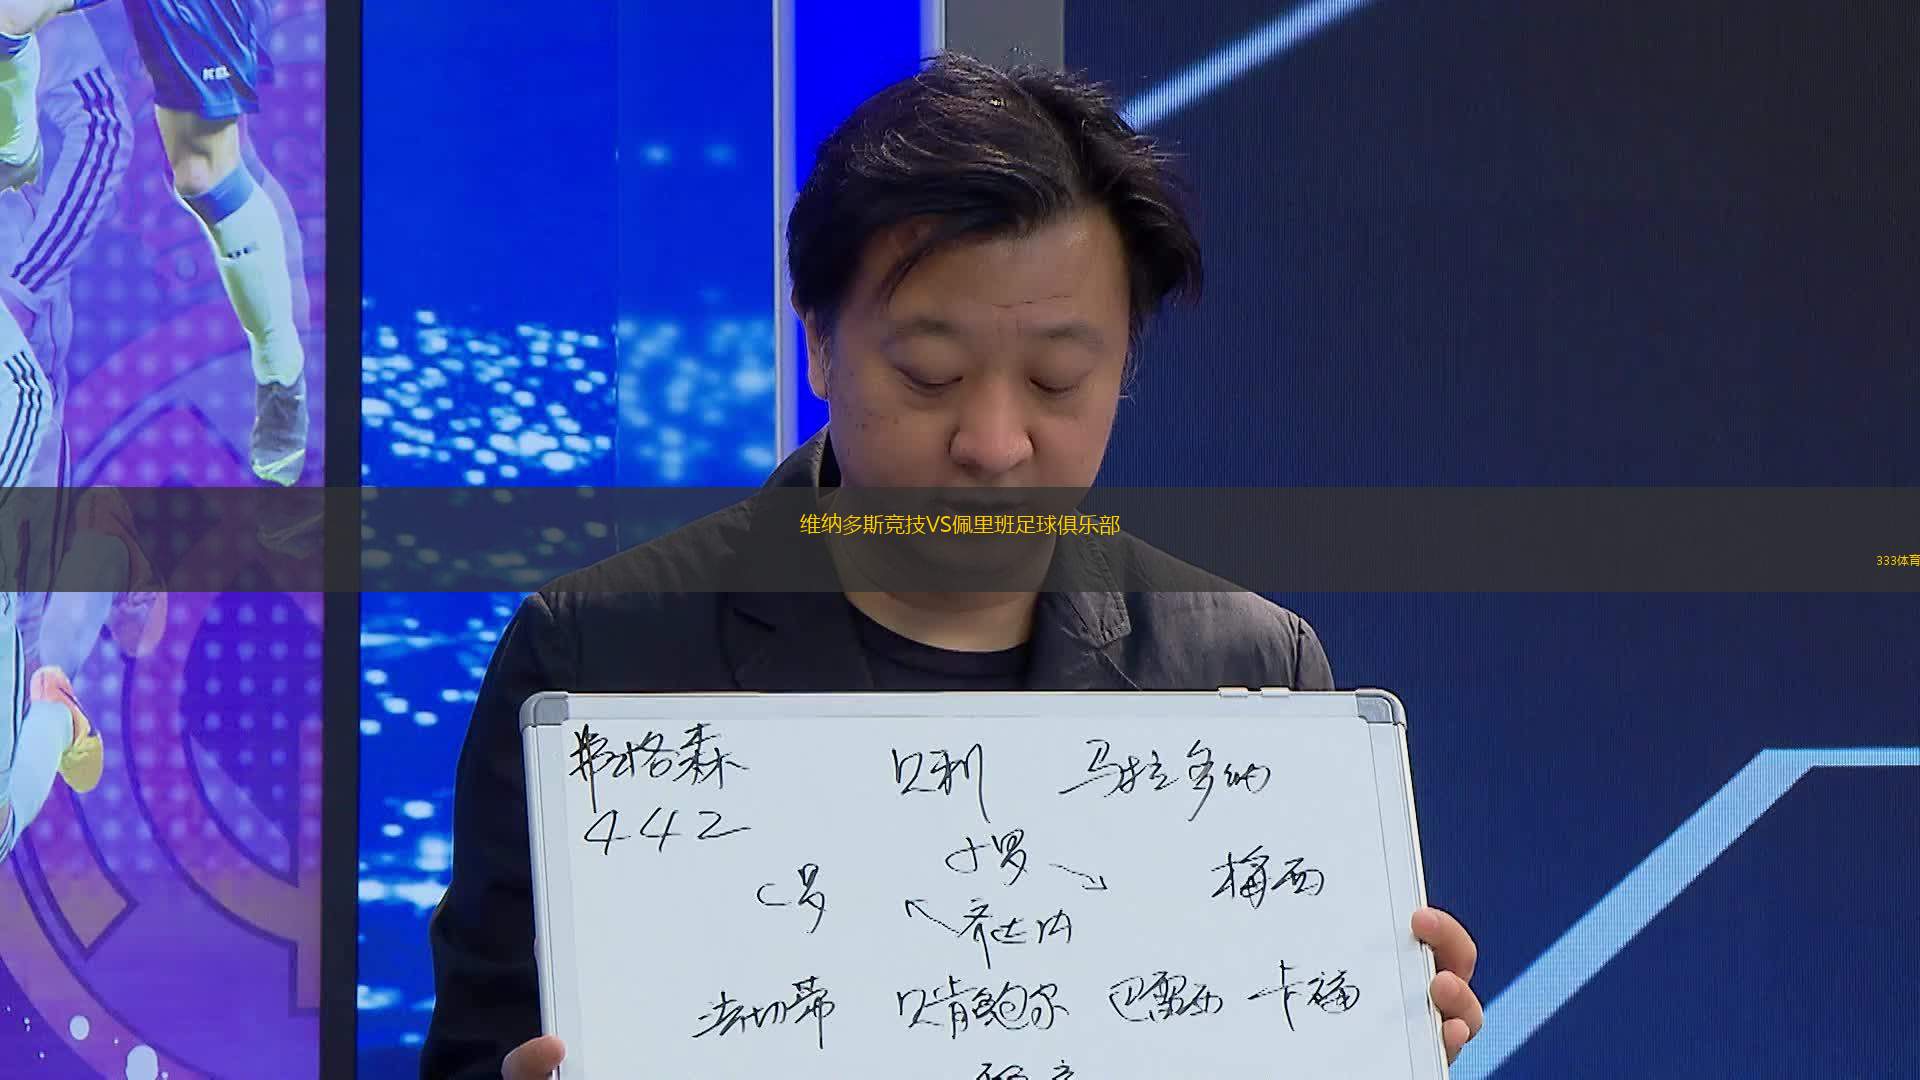 维纳多斯竞技VS佩里班足球俱乐部
333体育
弗格森 贝利 马拉多纳
442
小罗
C罗 梅西
齐达内
法切蒂 贝肯鲍尔 巴雷西 卡福